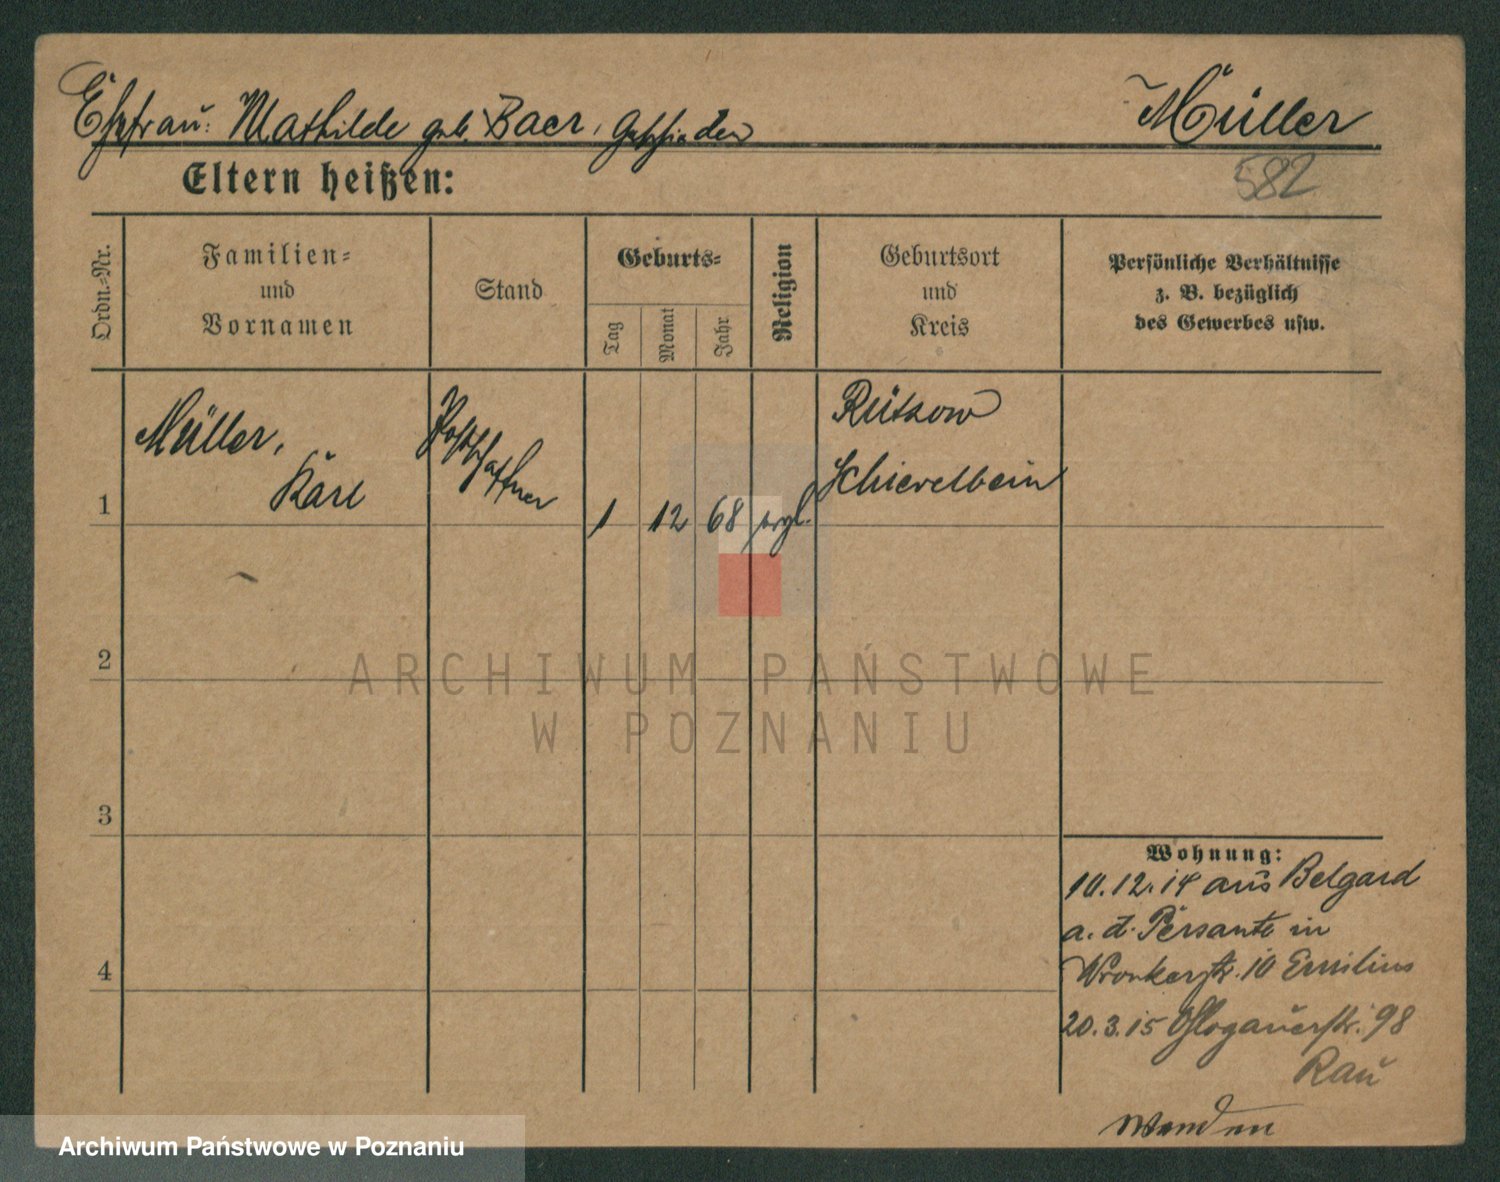 Ehefrau: Mathilde geb. Baer, geschieden
Müller
582
Eltern heißen:
Ordn.-Nr.
Familien-
und
Vornamen
Stand
Geburts-
Tag
Monat
Jahr
Religion
Geburtsort
und
Kreis
Persönliche Verhältnisse
z. B. bezüglich
des Gewerbes usw.
1
Müller,
Karl
Postschaffner
1 12 68 evgl.
Rützow
Schievelbein
2
3
4
ARCHIWUM PAŃSTWOWE
W POZNANIU
Wohnung:
10.12.14 aus Belgard
a. d. Persante in
Wronkerstr. 10 Emilius
20.3.15 Glogauerstr. 98
Rau
Wenden
Archiwum Państwowe w Poznaniu